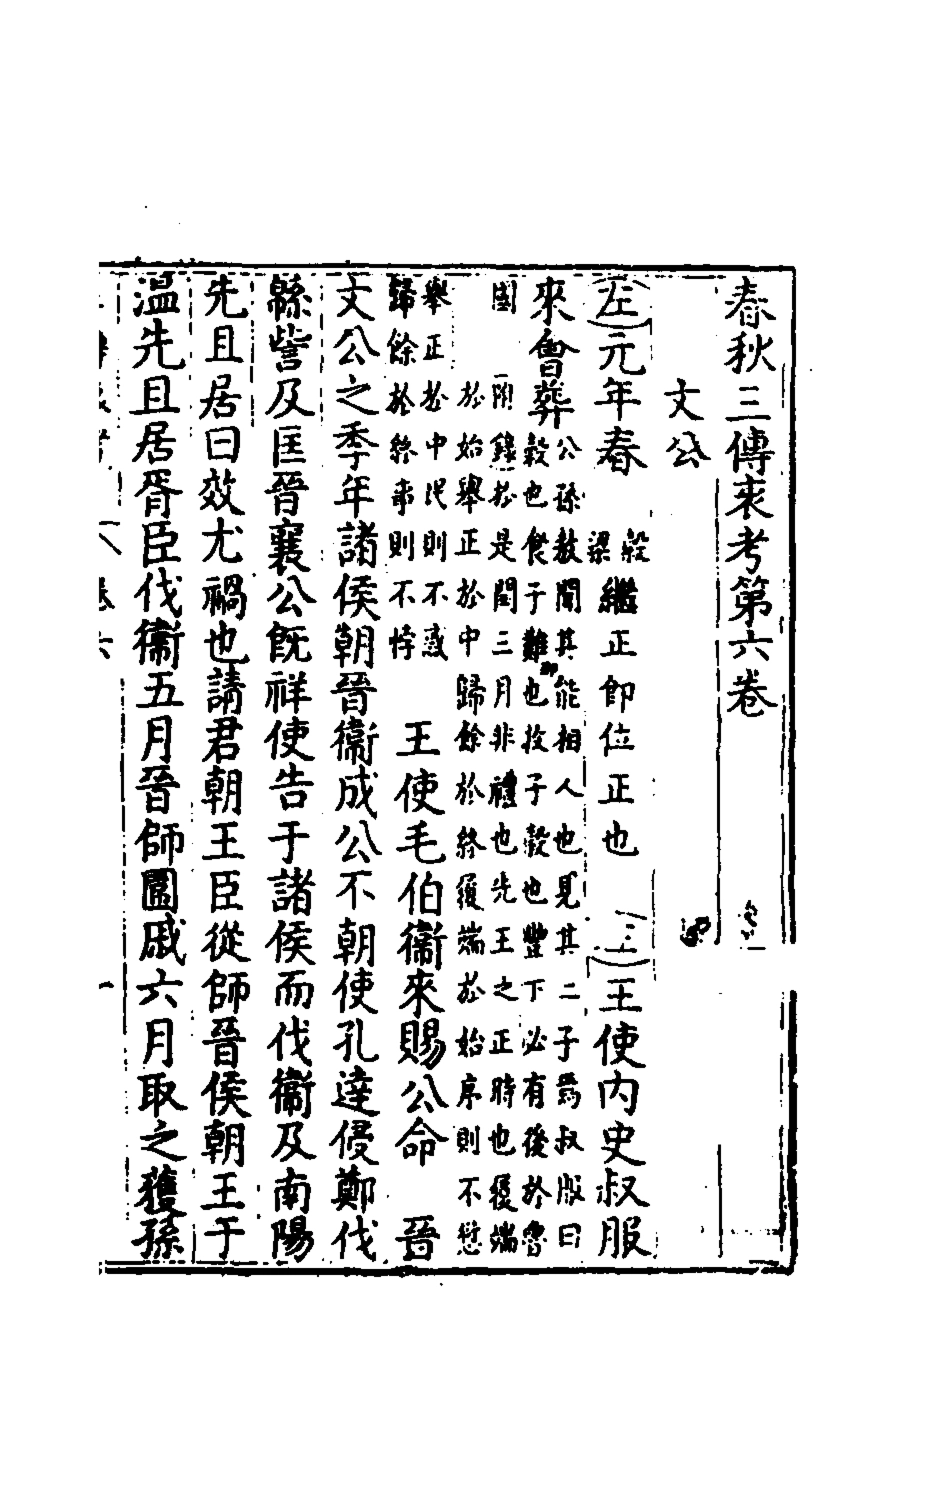 春秋三傳衷考第六卷
文公
左元年春
穀
梁
繼正即位正也
三
王使内史叔服
來會葬
公孫敖聞其能相人也見其二子焉叔服曰
穀也食子難也收子穀也豐下必有後於魯
國
附錄於是閏三月非禮也先王之正時也履端
於始舉正於中歸餘於終履端於始序則不愆
舉正於中民則不惑
歸餘於終事則不悖
王使毛伯衛來賜公命
晉
文公之季年諸侯朝晉衛成公不朝使孔達侵鄭伐
緜訾及匡晉襄公既祥使告于諸侯而伐衛及南陽
先且居曰效尤禍也請君朝王臣從師晉侯朝王于
溫先且居胥臣伐衛五月晉師圍戚六月取之獲孫